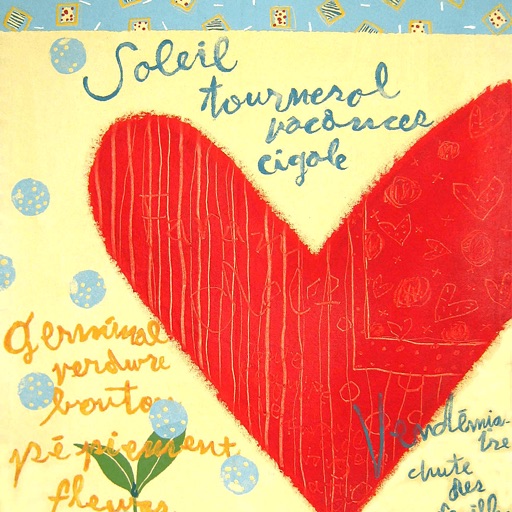 Soleil
tournesol
vacances
cigale
Germinal
verdure
bouton
pépiement
fleurs
Vendémia-
ire
chute
des